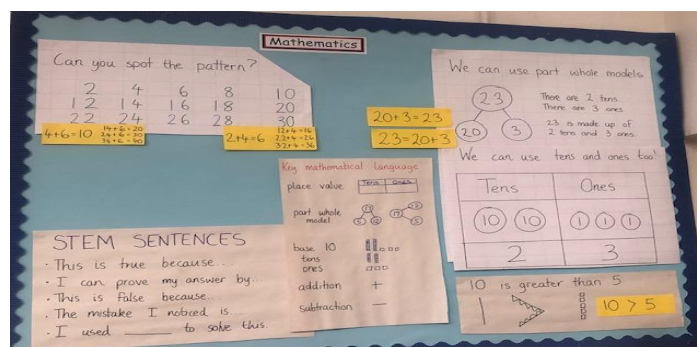 Mathematics
Can you spot the pattern?
2 4 6 8 10
12 14 16 18 20
22 24 26 28 30
4+6=10
14+6=20
24+6=30
34+6=40
2+4=6
12+4=16
22+4=26
32+4=36
20+3=23
23=20+3
We can use part whole models
23
20 3
There are 2 tens.
There are 3 ones.
23 is made up of
2 tens and 3 ones.
We can use tens and ones too!
Tens Ones
10 10 1 1 1
2 3
Key mathematical language
place value
Tens Ones
part whole
model
base 10
tens
ones
addition +
subtraction −
STEM SENTENCES
· This is true because...
· I can prove my answer by...
· This is false because...
· The mistake I noticed is......
· I used ______ to solve this.
10 is greater than 5
10 > 5